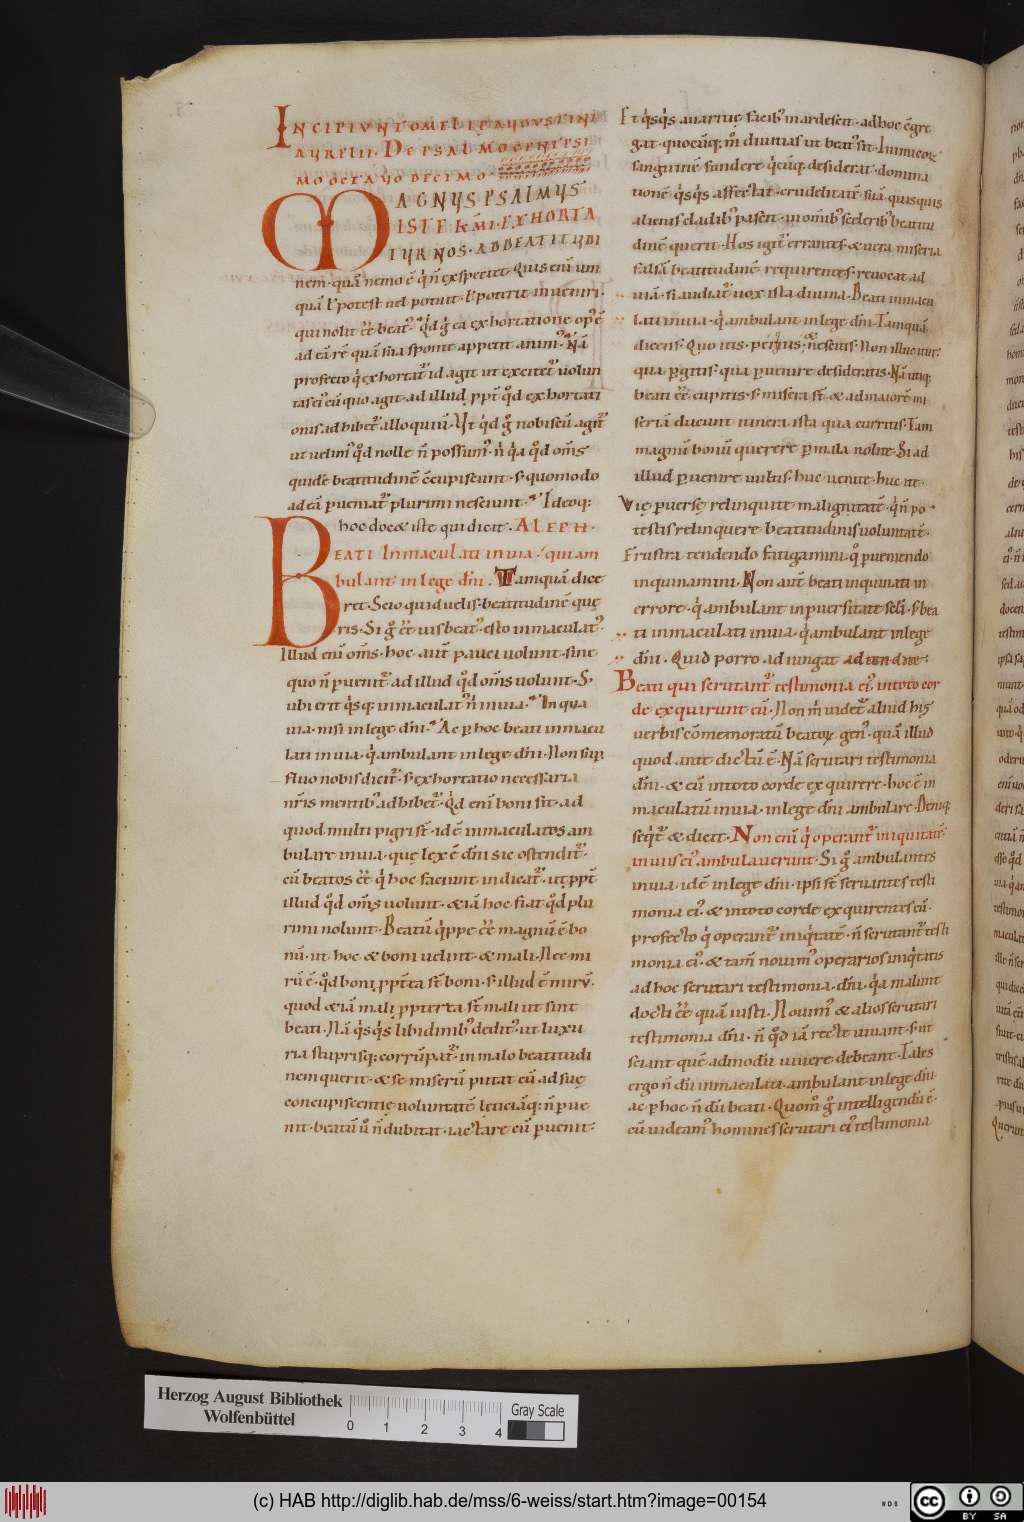 INCIPIVNT OMELIE AVGVSTINI
AVRELII. DE PSALMO CENTESI
MO OCTAVO DECIMO.
MAGNVS PSALMVS
ISTE k̅mi. EXHORTA
TVR NOS. AD BEATITVDI
nem. quā nemo ē q̇ n̄ exspectet. Quis eni um
quā l' potest uel potuit. l' poterit inueniri.
qui nolit ēē beat᾿.
ad eā rē quā sua sponte appetit anim᾿. Nā
profecto q̇ exhortat᾿ id agit ut excitet᾿ uolun
tas ei᾿ cū quo agit. ad illud ppt̄ qd̄ exhortati
onis adhibet᾿ alloquiū. Vt qd̄ g̊ nobiscū agit᾿
ut uelim᾿ qd̄ nolle n̄ possum᾿.
quidē beatitudinē ēcupiscunt. s; quomodo
ad eā pueniat᾿ plurimi nesciunt. Ideoq;
hoc docet iste qui dicit. ALEPH.
BEATI Inmaculati in uia. qui am
bulant in lege dn̄i. Tamquā dice
ret. Scio quid uelis. beatitudinē quę
ris. Si g̊ ēē uis beat᾿. esto inmaculat᾿.
Illud eni om̄s. hoc aut̄ pauci uolunt. sine
quo n̄ puenit᾿ ad illud qd̄ om̄s uolunt. S;
ubi erit q̇sq; inmaculat᾿ n̄ in uia. In qua
uia. nisi in lege dn̄i. Ac p hoc beati inmacu
lati in uia. q̇ ambulant in lege dn̄i. Non sup
fluo nobis dicit᾿. s; exhortatio necessaria
nr̄is mentib᾿ adhibet᾿. Qd̄ eni boni sit. ad
quod multi pigri st̄. id ē inmaculatos am
bulare in uia. quę lex ē dn̄i sic ostendit᾿.
cū beatos ēē q̇ hoc faciunt indicat᾿. ut ppt̄
illud qd̄ om̄s uolunt. & iā hoc fiat qd̄ plu
rimi nolunt. Beatū q̇ppe ēē magnū ē bo
nū. ut hoc & boni uelint. & mali. Nec mi
rū ē. qd̄ boni. ppt̄ta st̄ boni. s; illud ē mirū.
quod & iā mali ppterta st̄ mali ut sint
beati. Nā q̇sq̇s libidinib᾿ dedit᾿. ut luxu
ria stuprisq; corrūpat᾿. in malo beatitudi
nem querit. & se miserū putat cū ad suę
concupiscentię uoluntatē letitiāq; n̄ pue
nit. beatū ū n̄ dubitat. iactare cū puenit.
Et q̇sq̇s auaritię facib᾿ inardescit. ad hoc ēgre
gat. quocūq; m̄ diuitias ut beat᾿ sit. Inimicoꝝ
sanguinē fundere q̇cūq; desiderat. domina
tionē q̇sq̇s affectat. crudelitatē suā quisquis
alienis cladib᾿ pascit. in om̄ib᾿ scelerib᾿ beatitu
dinē querit. Hos igit᾿ errantes. & uera miseria
falsā beatitudinē requirentes. reuocat ad
uiā. si audiat᾿ uox ista diuina. Beati inmacu
lati in uia. q̇ ambulant in lege dn̄i. Tamquā
dicens. Quo itis. peritis. & nescitis. Non illuc itur.
qua pgitis. qua puenire desideratis. Nā utiq;
beati ēē cupitis. s; misera st̄. & ad maiorē mi
seriā ducunt itinera ista qua curritis. Tam
magnū bonū querere p mala nolite. Si ad
illud puenire uultis. huc uenite. huc ite.
Vię puersę relinquite malignitatē. q̇ n̄ po
testis relinquere beatitudinis uoluntatē.
Frustra tendendo fatigamini. quo pueniendo
inquinamini. Non aut̄ beati inquinati in
errore. q̇ ambulant in puersitate scl̄i. s; bea
ti inmaculati in uia. q̇ ambulant in lege
dn̄i. Quid porro adiungat
Beati qui scrutant᾿ testimonia ei᾿. in toto cor
de exquirunt eū. Non m̄ uidet᾿ aliud his
uerbis cōmemoratū beatoꝝ gen᾿. quā illud
quod ante dictū ē. Nā scrutari testimonia
dn̄i. & eū in toto corde exquirere. hoc ē in
maculatū in uia. in lege dn̄i ambulare. Deniq;
seq̇t᾿ & dicit. Non eni q̇ operant᾿ iniquitatē
in uiis ei᾿ ambulauerunt. Si g̊ ambulantes
in uia. id ē in lege dn̄i. ipsi st̄ scrutantes testi
monia ei᾿. & in toto corde exquirentes eū.
profecto q̇ operant᾿ iniq̇tatē. n̄ scrutant᾿ testi
monia ei᾿. & tam̄ nouim᾿ operarios iniq̇tatis
ad hoc scrutari testimonia dn̄i. q̇a malunt
docti ēē quā iusti. Nouim᾿ & alios scrutari
testimonia dn̄i. n̄ qd̄ iā recte uiuant. s; ut
sciant quē admodū uiuere debeant. Tales
ergo n̄ dū inmaculati ambulant in lege dn̄i.
ac p hoc n̄ dū beati. Quom̊ g̊ intelligendū ē.
cū uideam᾿ homines scrutari ei᾿ testimonia
Herzog August Bibliothek
Wolfenbüttel
0 1 2 3 4
Gray Scale
(c) HAB http://diglib.hab.de/mss/6-weiss/start.htm?image=00154
cc BY SA